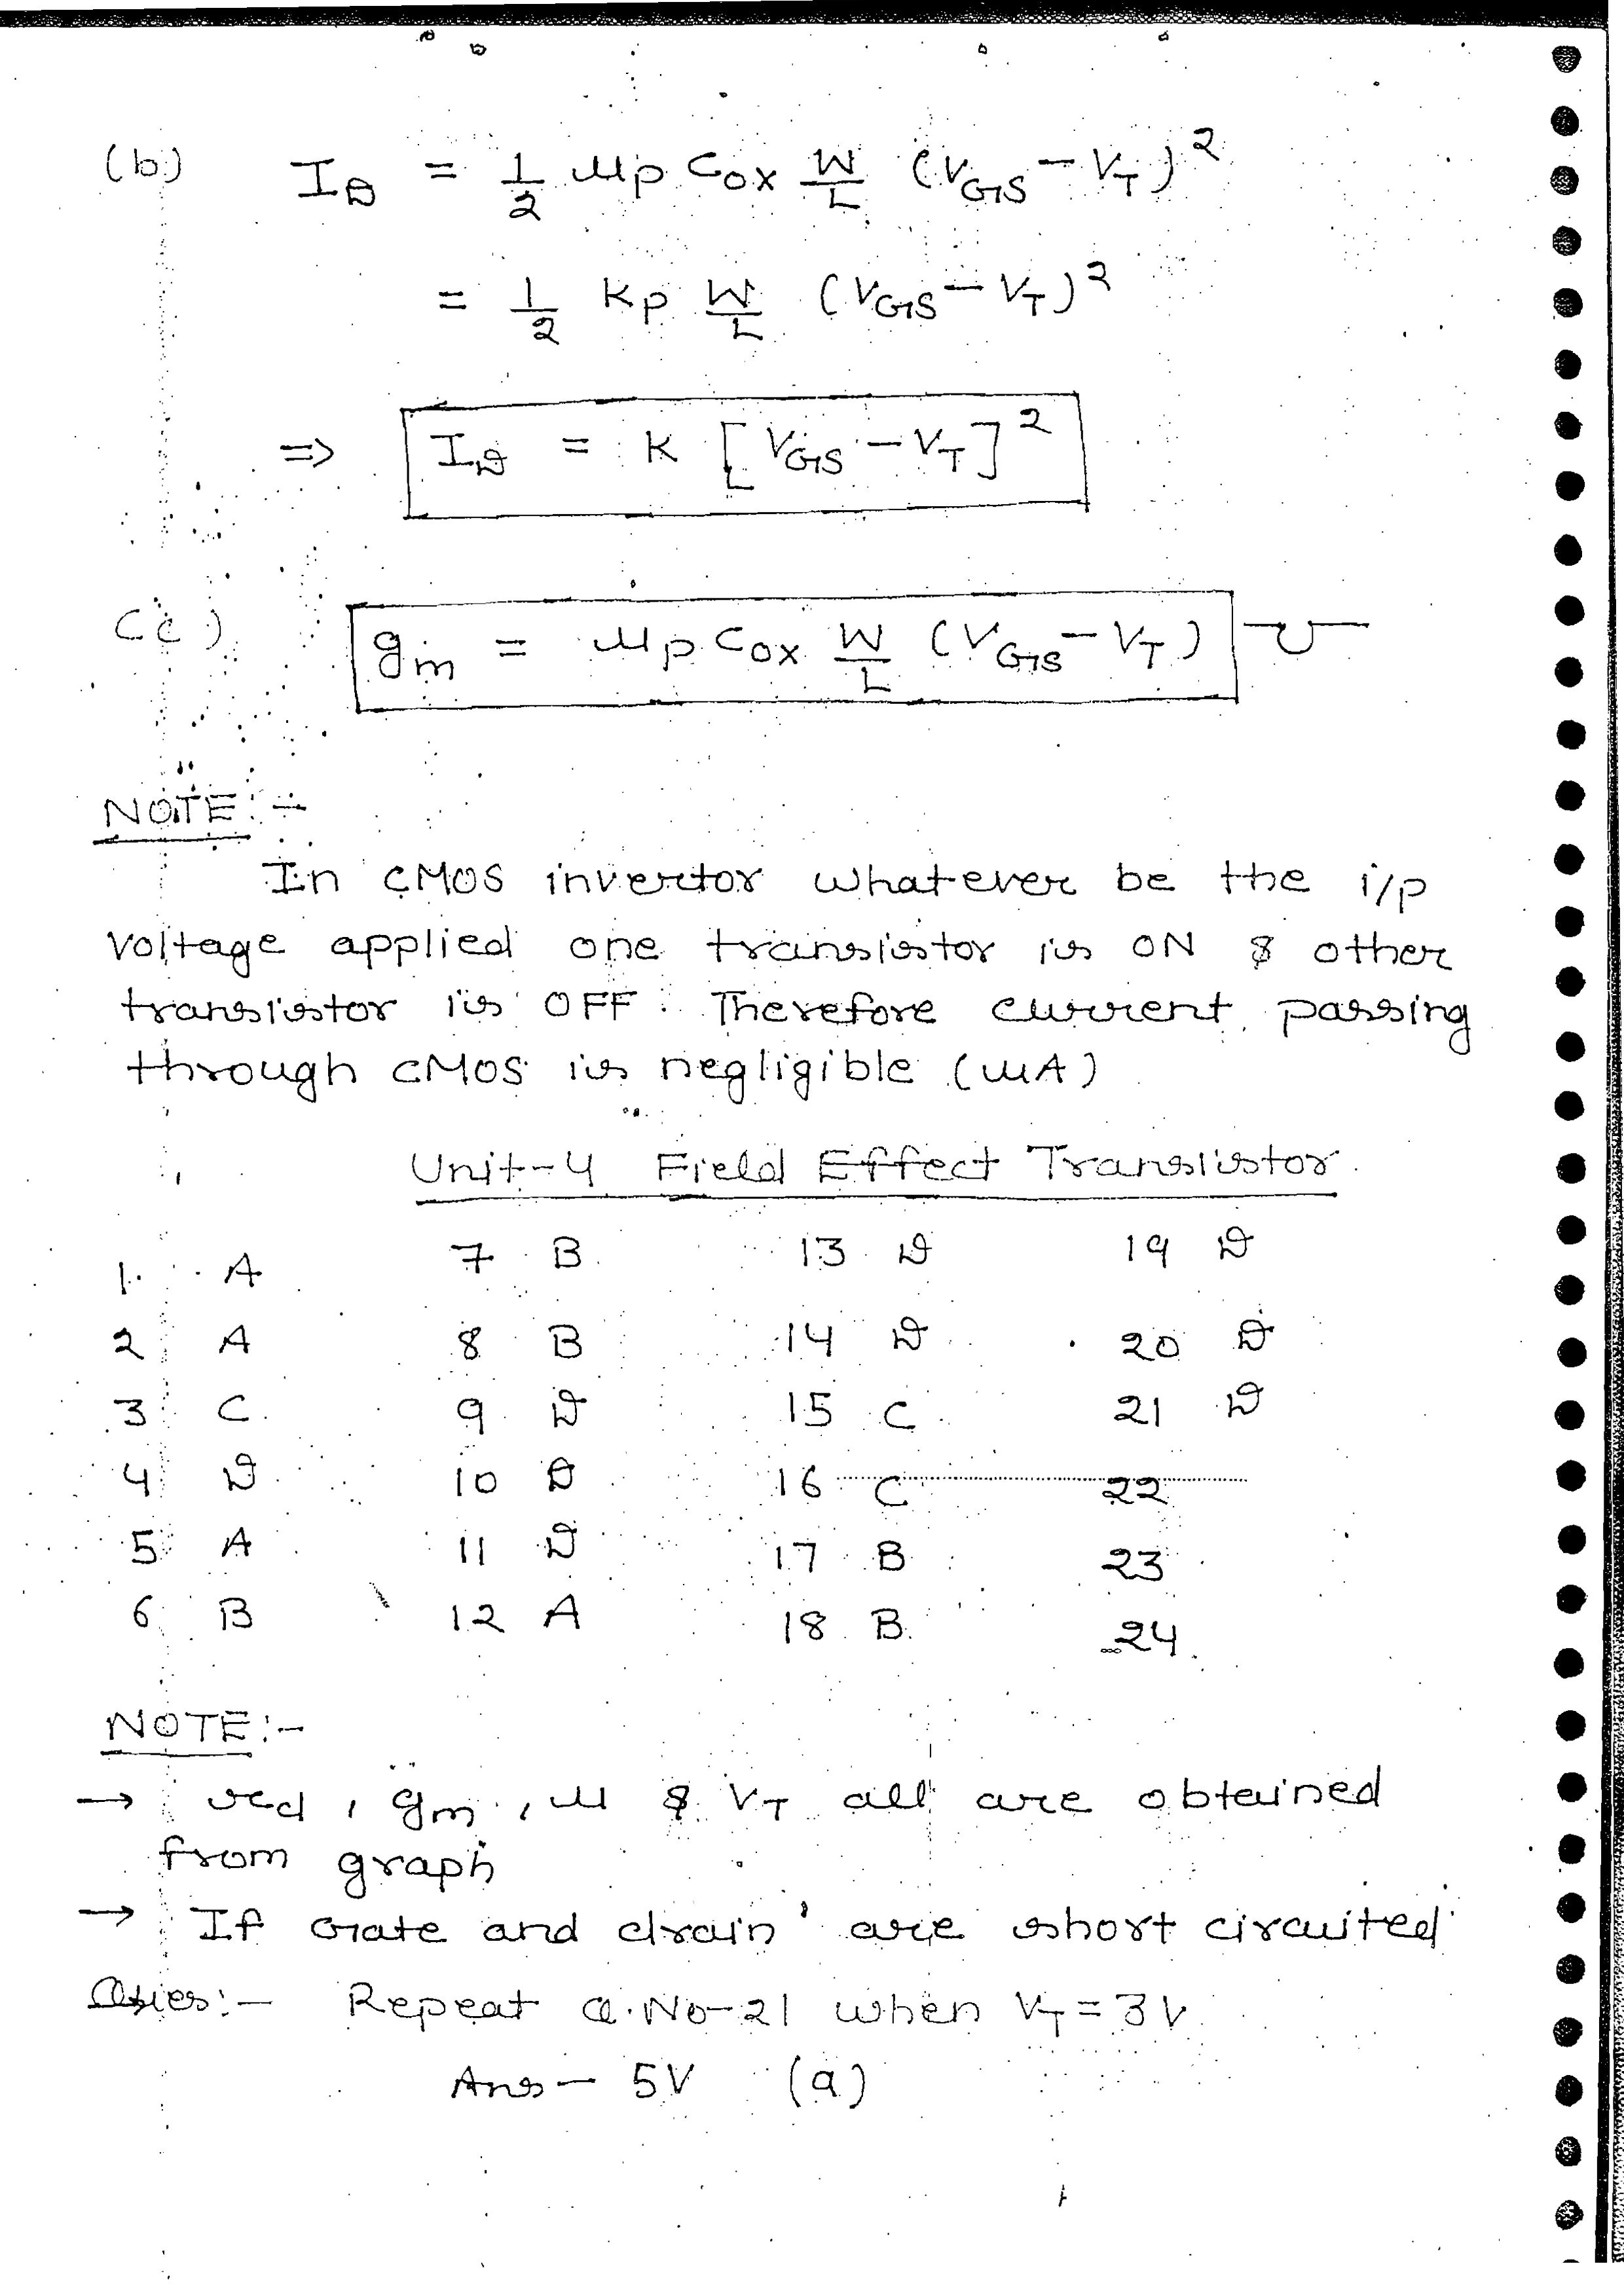 (b) I_D = 1/2 μp Cox W/L (VGS - VT)²
= 1/2 Kp W/L (VGS - VT)²
⇒ I_D = K [VGS - VT]²
(c) gm = μp Cox W/L (VGS - VT) ℧
NOTE:-
In CMOS invertor whatever be the i/p
voltage applied one transistor is ON & other
transistor is OFF. Therefore current passing
through CMOS is negligible (μA)
Unit-4 Field Effect Transistor
1. A 7 B 13 D 19 D
2 A 8 B 14 D 20 D
3 C 9 D 15 C 21 D
4 D 10 D 16 C 22
5 A 11 D 17 B 23
6 B 12 A 18 B 24
NOTE:-
→ rd, gm, μ & VT all are obtained
from graph
→ If Gate and drain are short circuited
Ques:- Repeat Q.No-21 when VT = 3V
Ans- 5V (a)